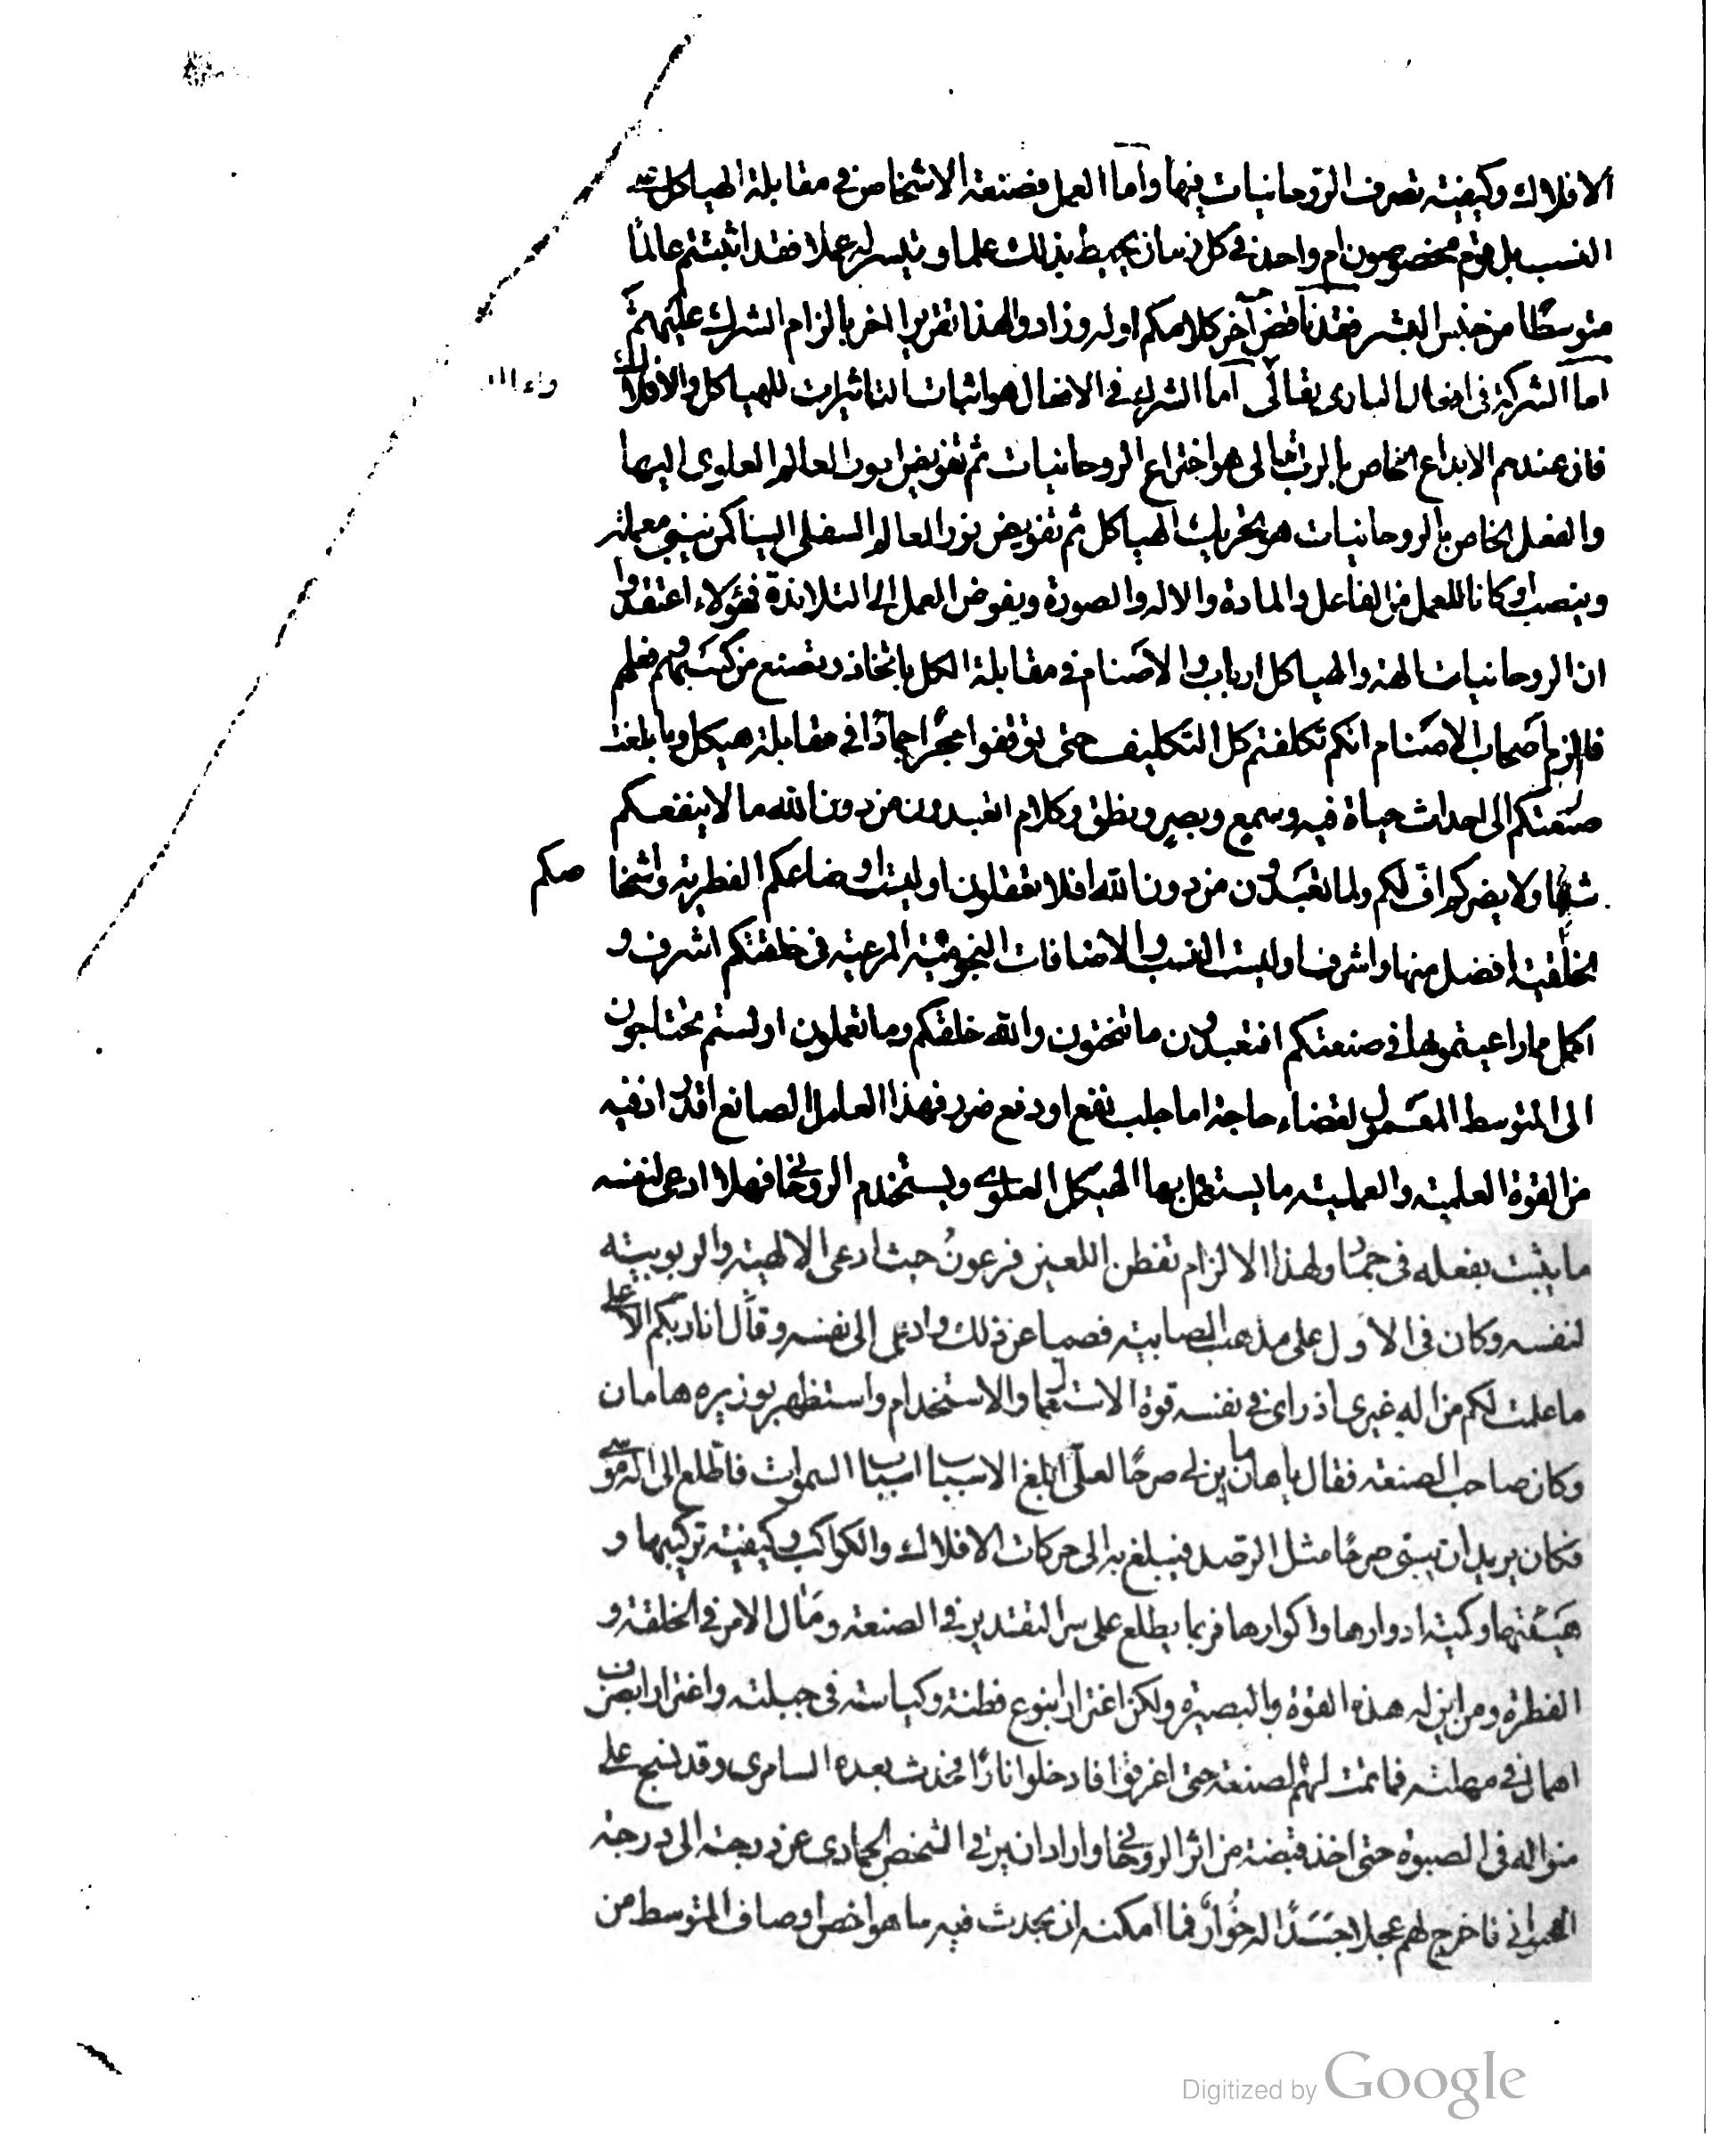 الافلاك وكيفية تصرف الروحانيات فيها واما العمل فصنعة الاشخاص في مقابلة الهياكل على
النسب بل قوم مخصوصون او واحد في كل زمان يحيط بذلك علما وتيسر له عملا فقد اثبتم عالمًا
متوسطًا من جنس البشر فقد ناقض آخر كلامكم اوله وزادوا لهذا تقريرا اخر بالزام الشرك عليهم
اما الشركة في افعال الباري تعالى اما الشرك في الافعال هو اثبات التاثيرات للهياكل والافلاك
فان عندهم الابداع الخاص بالرب تعالى هو اختراع الروحانيات ثم تفويض امور العالم العلوي اليها
والفعل الخاص بالروحانيات هو تحريك الهياكل ثم تفويض امور العالم السفلي اليها كمن يبني معملة
وينصب اركانا للعمل من الفاعل والمادة والالة والصورة ويفوض العمل الى التلامذة فهؤلاء اعتقدوا
ان الروحانيات الهة والهياكل ارباب والاصنام في مقابلة الكل باتخاذ وتصنع من كسبهم وفعلهم
فالزم اصحاب الاصنام انكم تكلفتم كل التكليف حتى توقفوا حجرًا جمادًا في مقابلة هيكل وما بلغت
صنعتكم الى احداث حياة فيه وسمع وبصر ونطق وكلام اتعبدون من دون الله ما لا ينفعكم
شيئا ولا يضركم اف لكم ولما تعبدون من دون الله افلا تعقلون او ليست اوضاعكم الفطرية واشخا صكم
الخلقية افضل منها واشرف او ليست النسب والاضافات النجومية المرعية في خلقتكم اشرف و
اكمل مما راعيتموها في صنعتكم اتعبدون ما تنحتون والله خلقكم وما تعملون او لستم تحتاجون
الى المتوسط المعمول لقضاء حاجة اما جلب نفع او دفع ضرر فهذا العامل الصانع اقدر اذ فيه
من القوة العلمية والعملية ما يستعمل بها الهيكل العلوي ويستخدم الروحاني فهلا ادعى لنفسه
ما يثبت بفعله في جماد ولهذا الالزام تفطن اللعين فرعون حيث ادعى الالهية والربوبية
لنفسه وكان في الاول على مذهب الصابية فصبا عن ذلك وادعى الى نفسه وقال انا ربكم الاعلى
ما علمت لكم من اله غيري اذ راى في نفسه قوة الاستعمال والاستخدام واستظهر بوزيره هامان
وكان صاحب الصنعة فقال يا هامان ابن لي صرحًا لعلي ابلغ الاسباب اسباب السموات فاطلع الى اله موسى
فكان يريد ان يبني صرحًا مثل الرصد فيبلغ به الى حركات الافلاك والكواكب وكيفية تركيبها و
هيئتها وكمية ادوارها واكوارها فربما يطلع على سر التقدير في الصنعة ومآل الامر في الخلقة و
الفطرة ومن اين له هذه القوة والبصيرة ولكن اغترار بنوع فطنة وكياسة في جبلته واغترار بضرب
اهمال في مهلته فما تمت لهم الصنعة حتى اغرقوا فادخلوا نارًا فحدث بعده السامري وقد نسج على
منواله في الصبوة حتى اخذ قبضة من اثر الروحاني واراد ان يرقي الشخص الجمادي عن درجته الى درجة
الحيواني فاخرج لهم عجلا جسدًا له خوار فما امكنه ان يحدث فيه ما هو اخص اوصاف المتوسط من
Digitized by Google